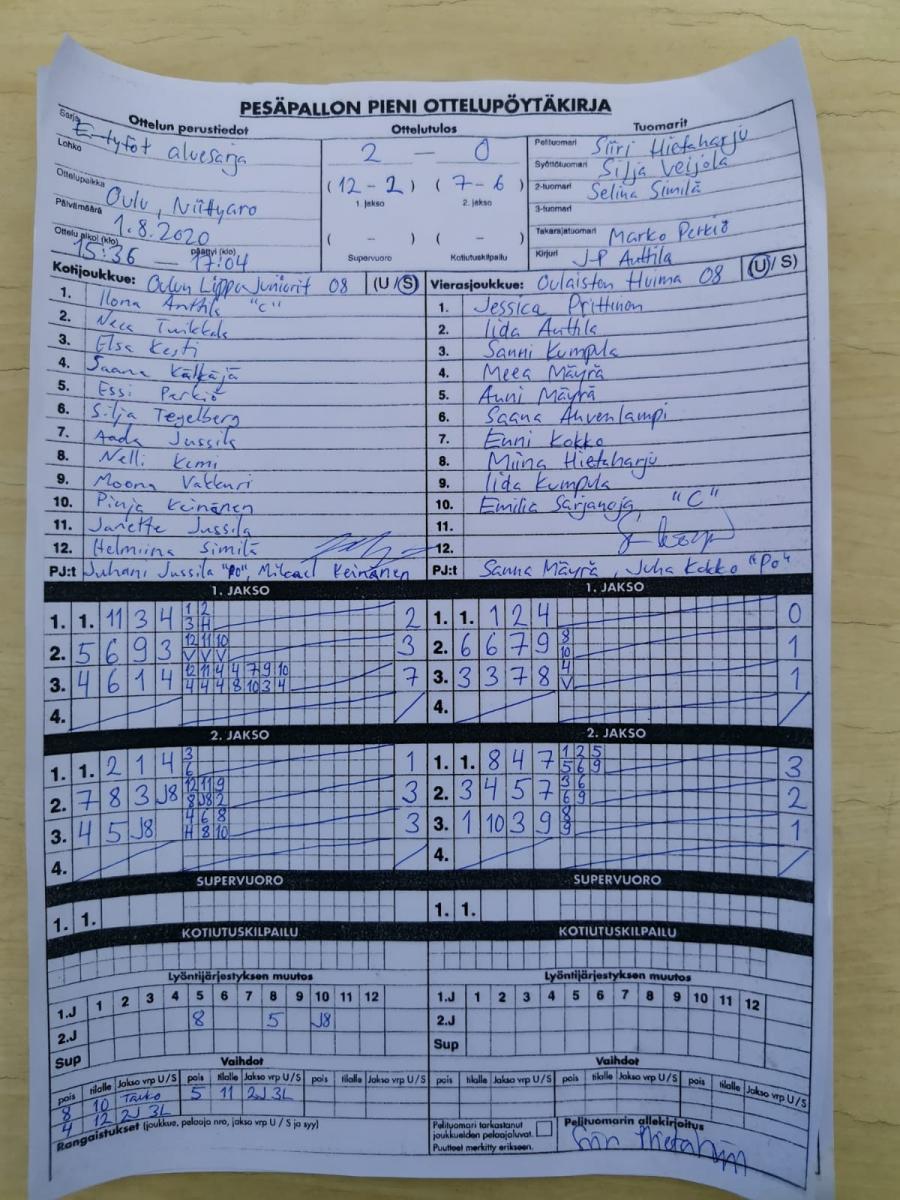 PESÄPALLON PIENI OTTELUPÖYTÄKIRJA
Ottelun perustiedot Ottelutulos Tuomarit
Sarja E-tytöt aluesarja
Lohko
Ottelupaikka Oulu, Niittyaro
Päivämäärä 1.8.2020
Ottelu alkoi (klo) päättyi (klo)
15:36 — 17:04
2 — 0
(12 - 2) (7 - 6)
1. jakso 2. jakso
( - ) ( - )
Supervuoro Kotiutuskilpailu
Pelituomari Siiri Hietaharju
Syöttötuomari Silja Veijola
2-tuomari Selina Similä
3-tuomari
Takarajatuomari Marko Perkiö
Kirjuri J-P Anttila
Kotijoukkue: Oulun Lippo Juniorit 08 (U / S)
1. Ilona Anttila "C"
2. Neea Tuikkala
3. Elsa Kesti
4. Saana Kälkäjä
5. Essi Perkiö
6. Silja Tegelberg
7. Aada Jussila
8. Nelli Kemi
9. Moona Vakkuri
10. Pinja Keinänen
11. Janette Jussila
12. Helmiina Similä
PJ:t Juhani Jussila "PO", Mikael Keinänen
Vierasjoukkue: Oulaisten Huima 08 (U / S)
1. Jessica Prittinen
2. Iida Anttila
3. Sanni Kumpula
4. Meea Mäyrä
5. Anni Mäyrä
6. Saana Ahvenlampi
7. Enni Kokko
8. Miina Hietaharju
9. Iida Kumpula
10. Emilia Sarjanoja, "C"
11.
12.
PJ:t Sanna Mäyrä, Juha Kokko "PO"
1. JAKSO 1. JAKSO
1. 1. 11 3 4 1 2 3 H 2
2. 5 6 9 3 12 11 10 V V V 3
3. 4 6 1 4 12 11 4 4 7 9 10 4 4 4 8 10 3 4 7
4.
1. 1. 1 2 4 0
2. 6 6 7 9 8 10 1
3. 3 3 7 8 4 V 1
4.
2. JAKSO 2. JAKSO
1. 1. 2 1 4 3 6 1
2. 7 8 3 J8 12 11 9 8 J8 2 3
3. 4 5 J8 4 6 8 H 8 10 3
4.
1. 1. 8 4 7 1 2 5 5 6 9 3
2. 3 4 5 7 3 6 6 9 2
3. 1 10 3 9 8 9 1
4.
SUPERVUORO SUPERVUORO
1. 1. 1. 1.
KOTIUTUSKILPAILU KOTIUTUSKILPAILU
Lyöntijärjestyksen muutos Lyöntijärjestyksen muutos
1.J 1 2 3 4 5 6 7 8 9 10 11 12 1.J 1 2 3 4 5 6 7 8 9 10 11 12
2.J 8 5 J8 2.J
Sup Sup
Vaihdot Vaihdot
pois tilalle Jakso vrp U/S pois tilalle Jakso vrp U/S pois tilalle Jakso vrp U/S pois tilalle Jakso vrp U/S pois tilalle Jakso vrp U/S pois tilalle Jakso vrp U/S
8 10 Tauko 5 11 2J 3L
4 12 2J 3L
Rangaistukset (joukkue, pelaaja nro, jakso vrp U / S ja syy)
Pelituomari tarkastanut
joukkueiden pelaajaluvat.
Puutteet merkitty erikseen.
Pelituomarin allekirjoitus
Siiri Hietaharju